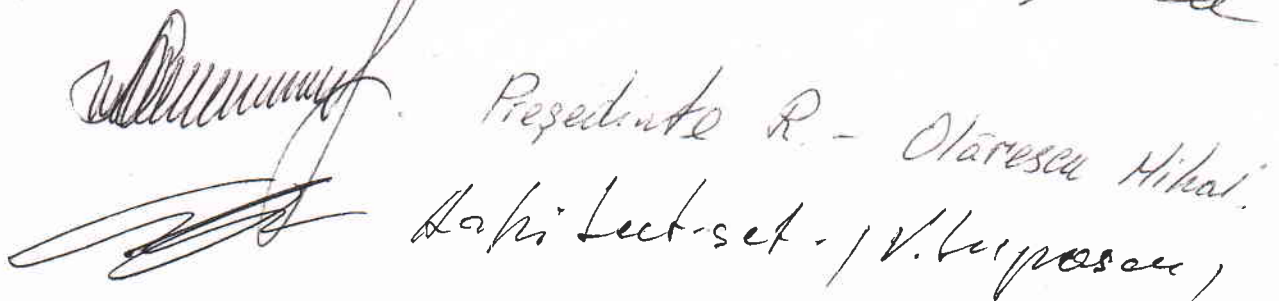 Președinte R. - Olărescu Mihai.
Arhitect-șef - / V. Lupascu /